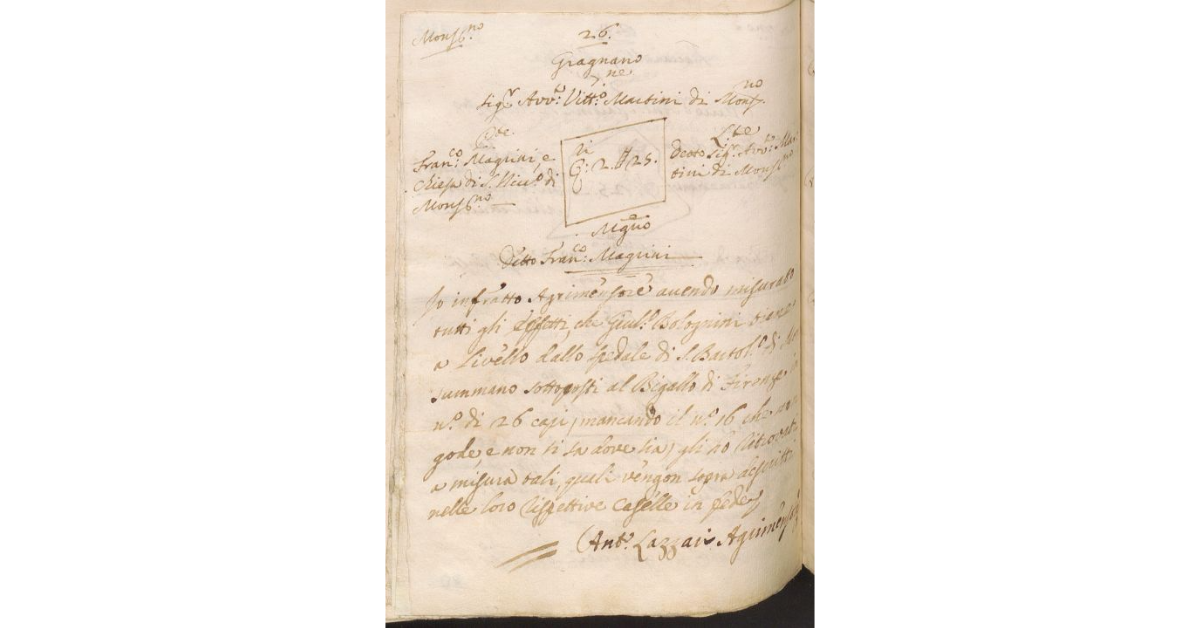 Mons.no
26.
Gragnano
ne
Sig.r Avv.o Vitt.o Martini di Mons.no
Pte
L.te
Fran.co Magrini, e
Chiesa di S. Nicc.o di
Mons.no
G: 2. # 25.
Detto Sig.r Avv.o Mar
tini di Mons.no
Detto Fran.co Magrini
Io infratto Agrimensore avendo misurato
tutti gli effetti, che Giul.o Bolognini tiene
a Livello dallo spedale di S. Bartol.o di Mo
summano sottoposti al Bigallo di Firenze
n.o di 26 capi, mancando il n.o 16 che
gode, e non si sa dove sia, gli ho ritrovati
a misura tali, quali vengon sopra descritti
nelle loro rispettive Caselle in fede
Ant.o Lazzari Agrimensore